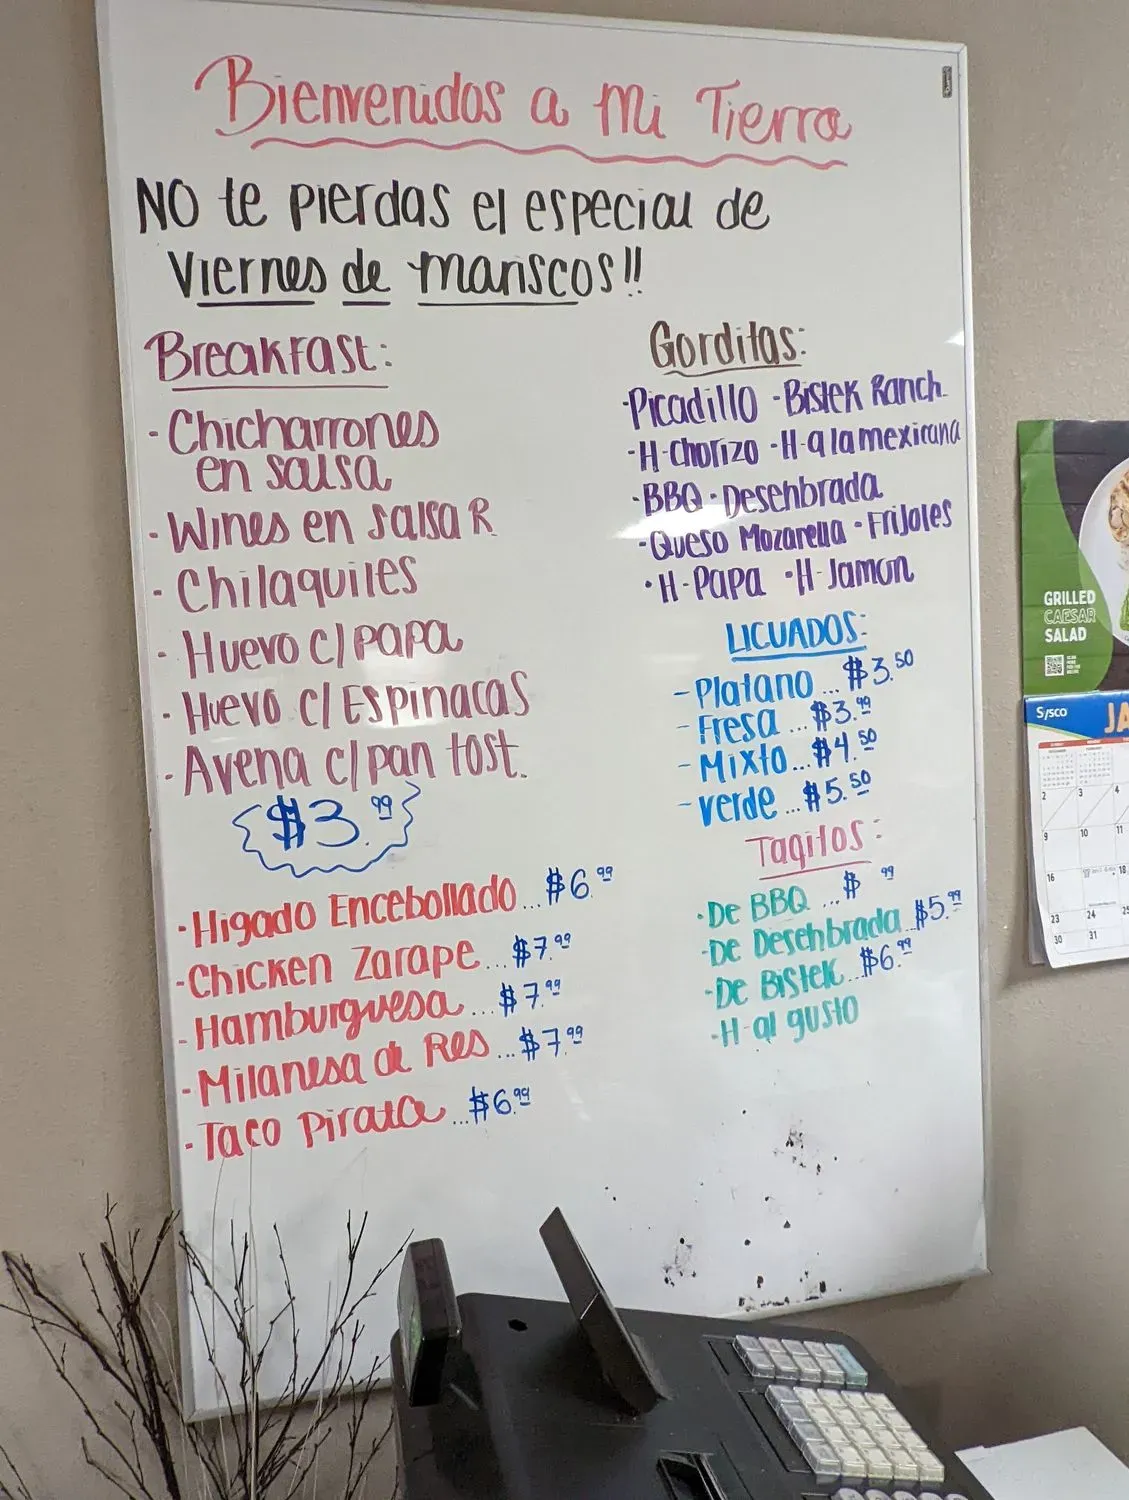 Bienvenidos a Mi Tierra
NO te pierdas el especial de
Viernes de Mariscos!!
Breakfast:
- Chicharrones
en salsa
- Wines en salsa R.
- Chilaquiles
- Huevo c/ papa
- Huevo c/ Espinacas
- Avena c/ pan tost.
$3.99
- Higado Encebollado...$6.99
- Chicken Zarape...$7.99
- Hamburguesa...$7.99
- Milanesa de Res...$7.99
- Taco Pirata...$6.99
Gorditas:
- Picadillo - Bistek Ranch.
- H-chorizo - H-a la mexicana
- BBQ - Desehbrada
- Queso Mozarella - Frijoles
- H-Papa - H-Jamon
LICUADOS:
- Platano...$3.50
- Fresa...$3.99
- Mixto...$4.50
- Verde...$5.50
Taqitos:
- De BBQ...$ 99
- De Desehbrada..$5.99
- De Bistek...$6.99
- H-al gusto
GRILLED
CAESAR
SALAD
Sysco
JA
2 3 4
9 10 11
16 17 18
23 24 25
30 31